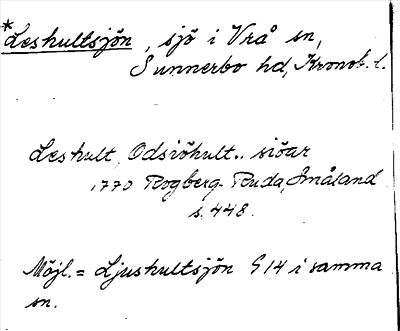 *Leshultsjön, sjö i Vrå sn,
Sunnerbo hd, Kronob. l.
Leshult, Odsiöhult.. siöar
1770 Rogberg-Ruda, Småland
s. 448.
Möjl. = Ljushultsjön G 14 i samma
sn.